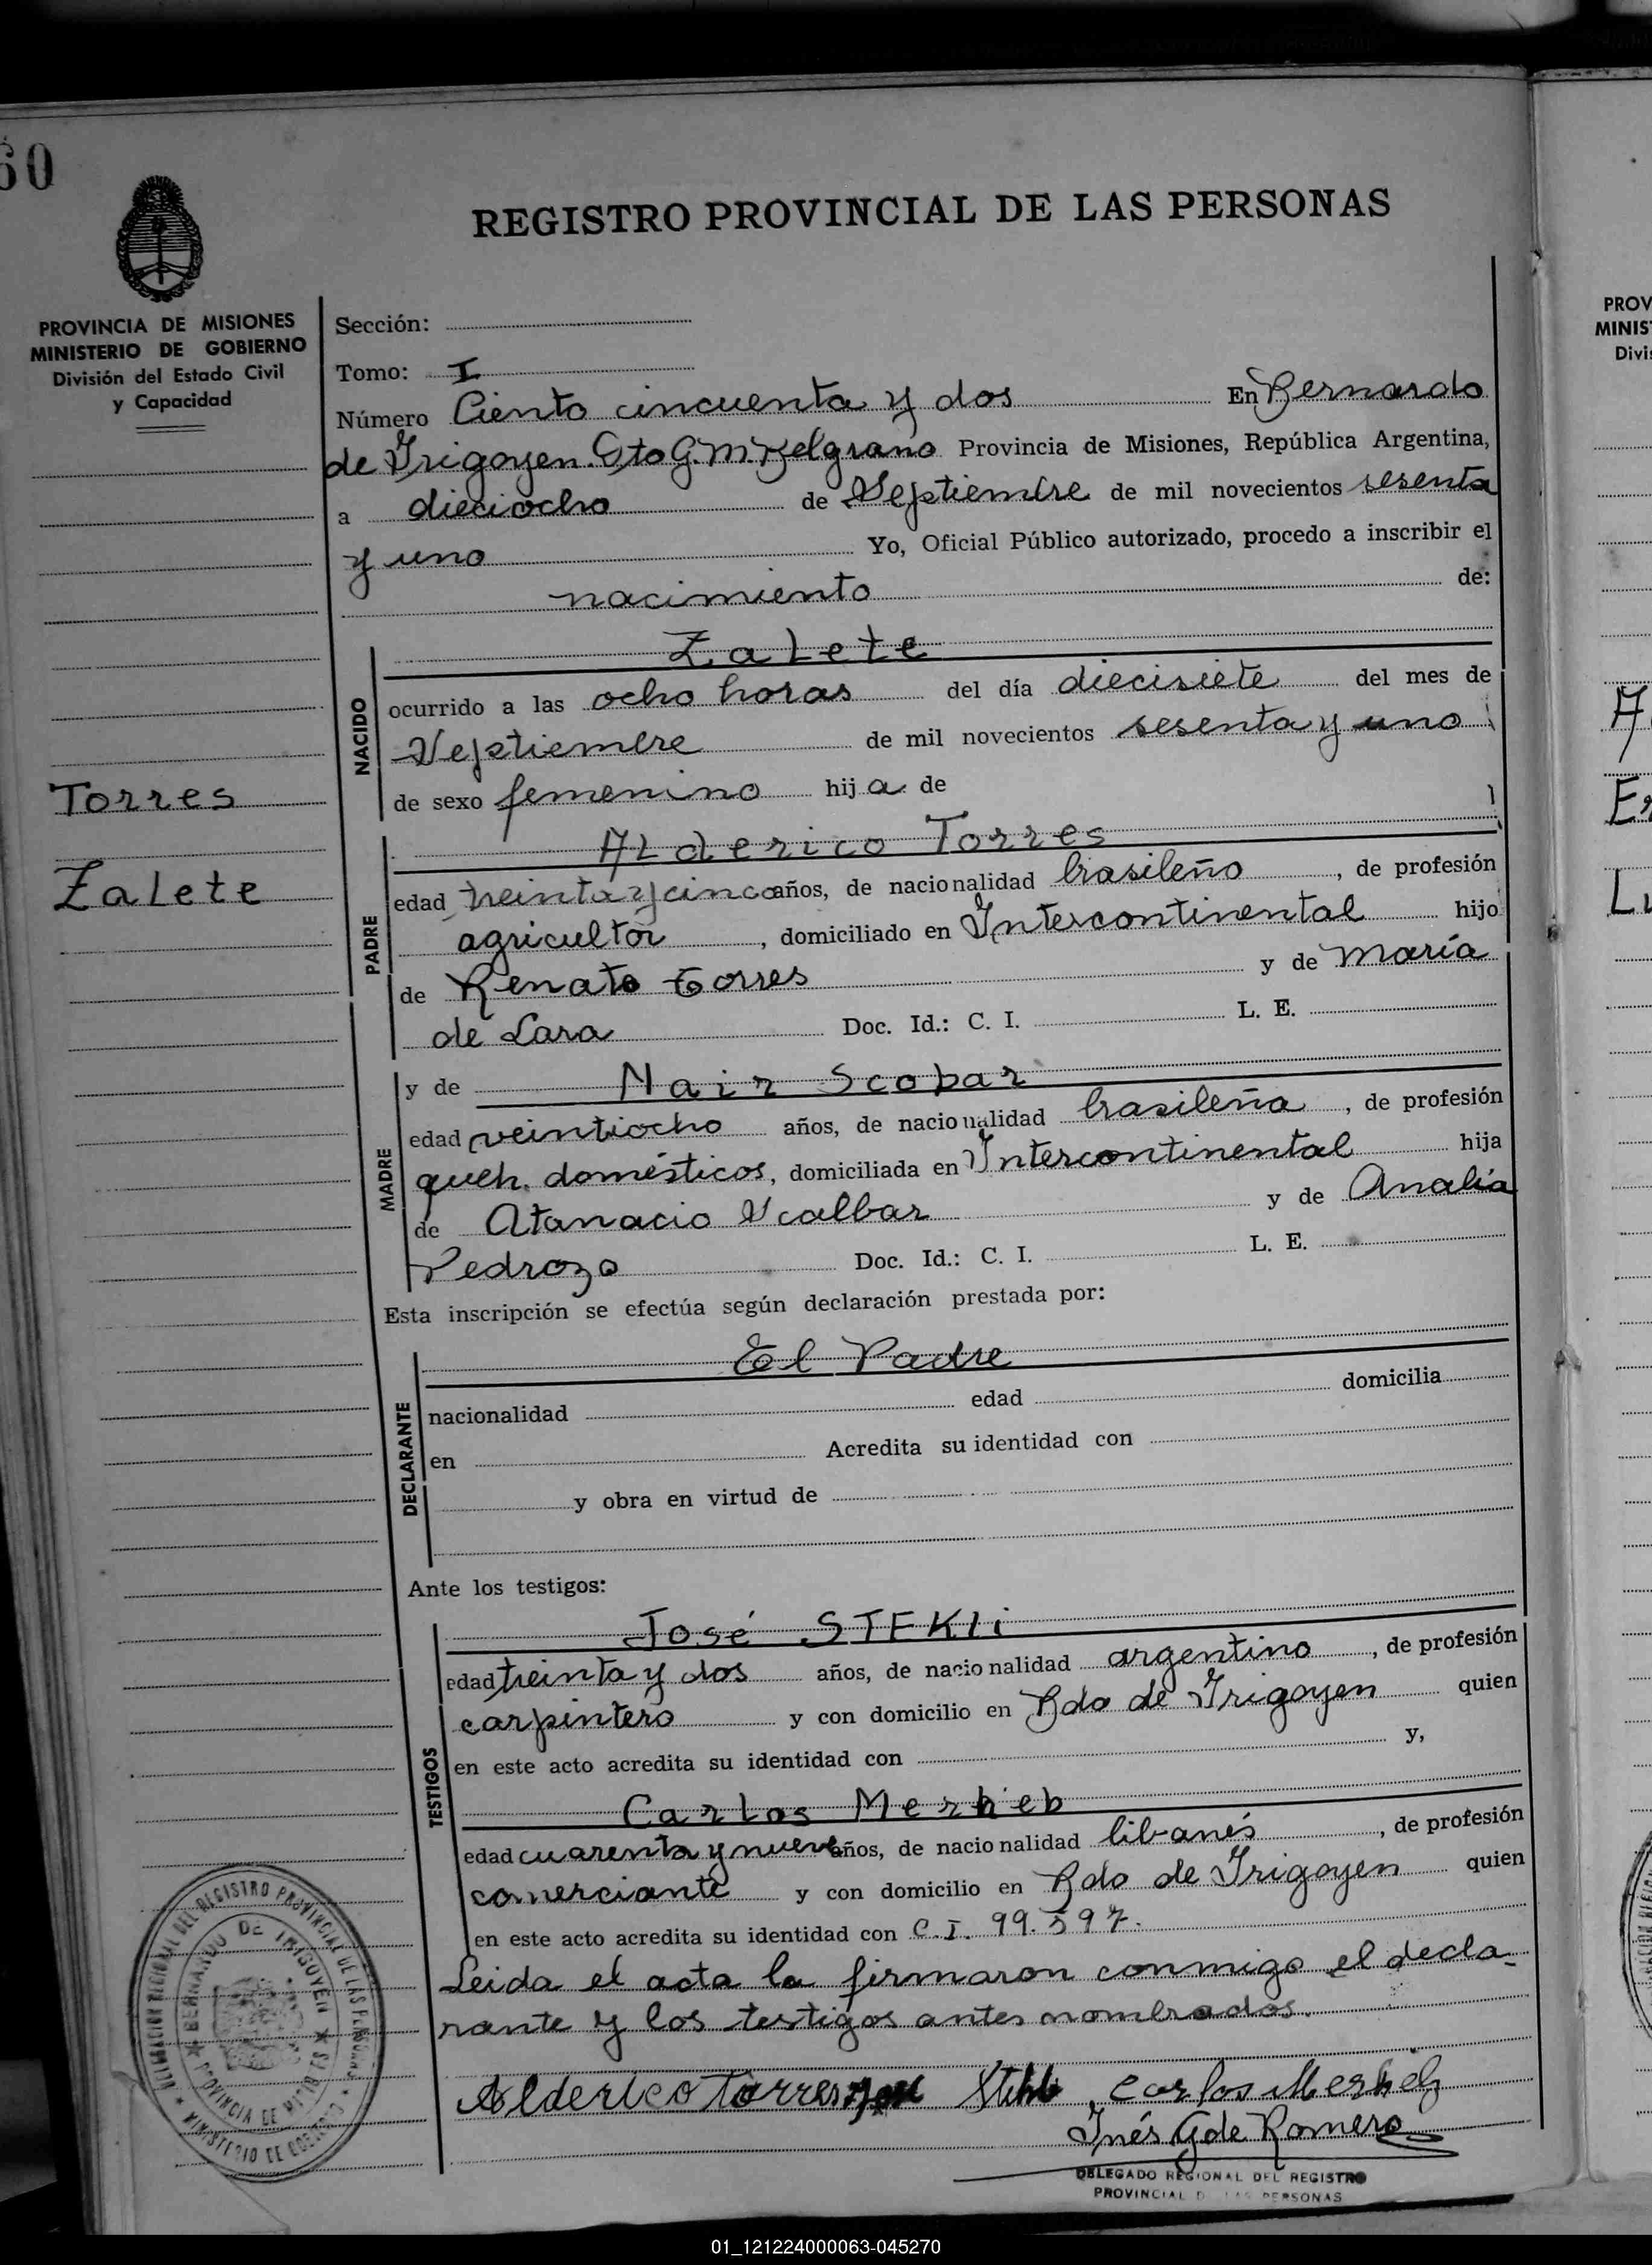 60
REGISTRO PROVINCIAL DE LAS PERSONAS
PROVINCIA DE MISIONES
MINISTERIO DE GOBIERNO
División del Estado Civil
y Capacidad
Torres
Zalete
Sección:
Tomo: I
Número Ciento cincuenta y dos En Bernardo
de Irigoyen. Dto G.M. Belgrano Provincia de Misiones, República Argentina,
a dieciocho de Septiembre de mil novecientos sesenta
y uno Yo, Oficial Público autorizado, procedo a inscribir el
nacimiento de:
NACIDO
Zalete
ocurrido a las ocho horas del día diecisiete del mes de
Septiembre de mil novecientos sesenta y uno
de sexo femenino hija de
PADRE
Alderico Torres
edad treinta y cinco años, de nacionalidad brasileño, de profesión
agricultor, domiciliado en Intercontinental hijo
de Renato Torres y de María
de Lara Doc. Id.: C. I. L. E.
MADRE
y de Nair Scobar
edad veintiocho años, de nacionalidad brasileña, de profesión
queh. domésticos, domiciliada en Intercontinental hija
de Atanacio Scalbar y de Analia
Pedrozo Doc. Id.: C. I. L. E.
Esta inscripción se efectúa según declaración prestada por:
DECLARANTE
El Padre
nacionalidad edad domicilia
en Acredita su identidad con
y obra en virtud de
Ante los testigos:
TESTIGOS
José STEKLi
edad treinta y dos años, de nacionalidad argentino, de profesión
carpintero y con domicilio en Bdo de Irigoyen quien
en este acto acredita su identidad con y,
Carlos Merheb
edad cuarenta y nueve años, de nacionalidad libanés, de profesión
comerciante y con domicilio en Bdo de Irigoyen quien
en este acto acredita su identidad con C.I. 99.597.
Leida el acta la firmaron conmigo el decla-
rante y los testigos antes nombrados.
Alderico Torres Carlos Merheb
Inés G de Romero
DELEGADO REGIONAL DEL REGISTRO
PROVINCIAL DE LAS PERSONAS
DELEGACION REGIONAL DEL REGISTRO PROVINCIAL DE LAS PERSONAS
MINISTERIO DE GOBIERNO
BERNARDO DE IRIGOYEN
PROVINCIA DE MISIONES
PROV
MINIS
Divi
01_121224000063-045270